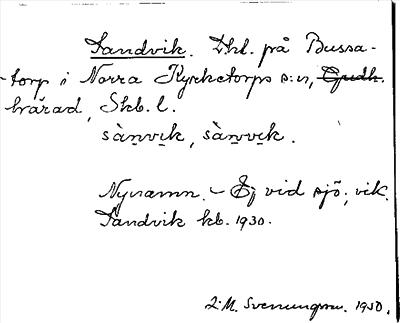 Sandvik. Dhl. på Bussa-
-torp i Norra Kyrketorps s:n, Gudh.
härad, Skb. l.
sàn̥vik, sàn̥vik.
Nynamn. – Ej vid sjö, vik.
Sandvik kb. 1930.
I. M. Svenungsson. 1950.